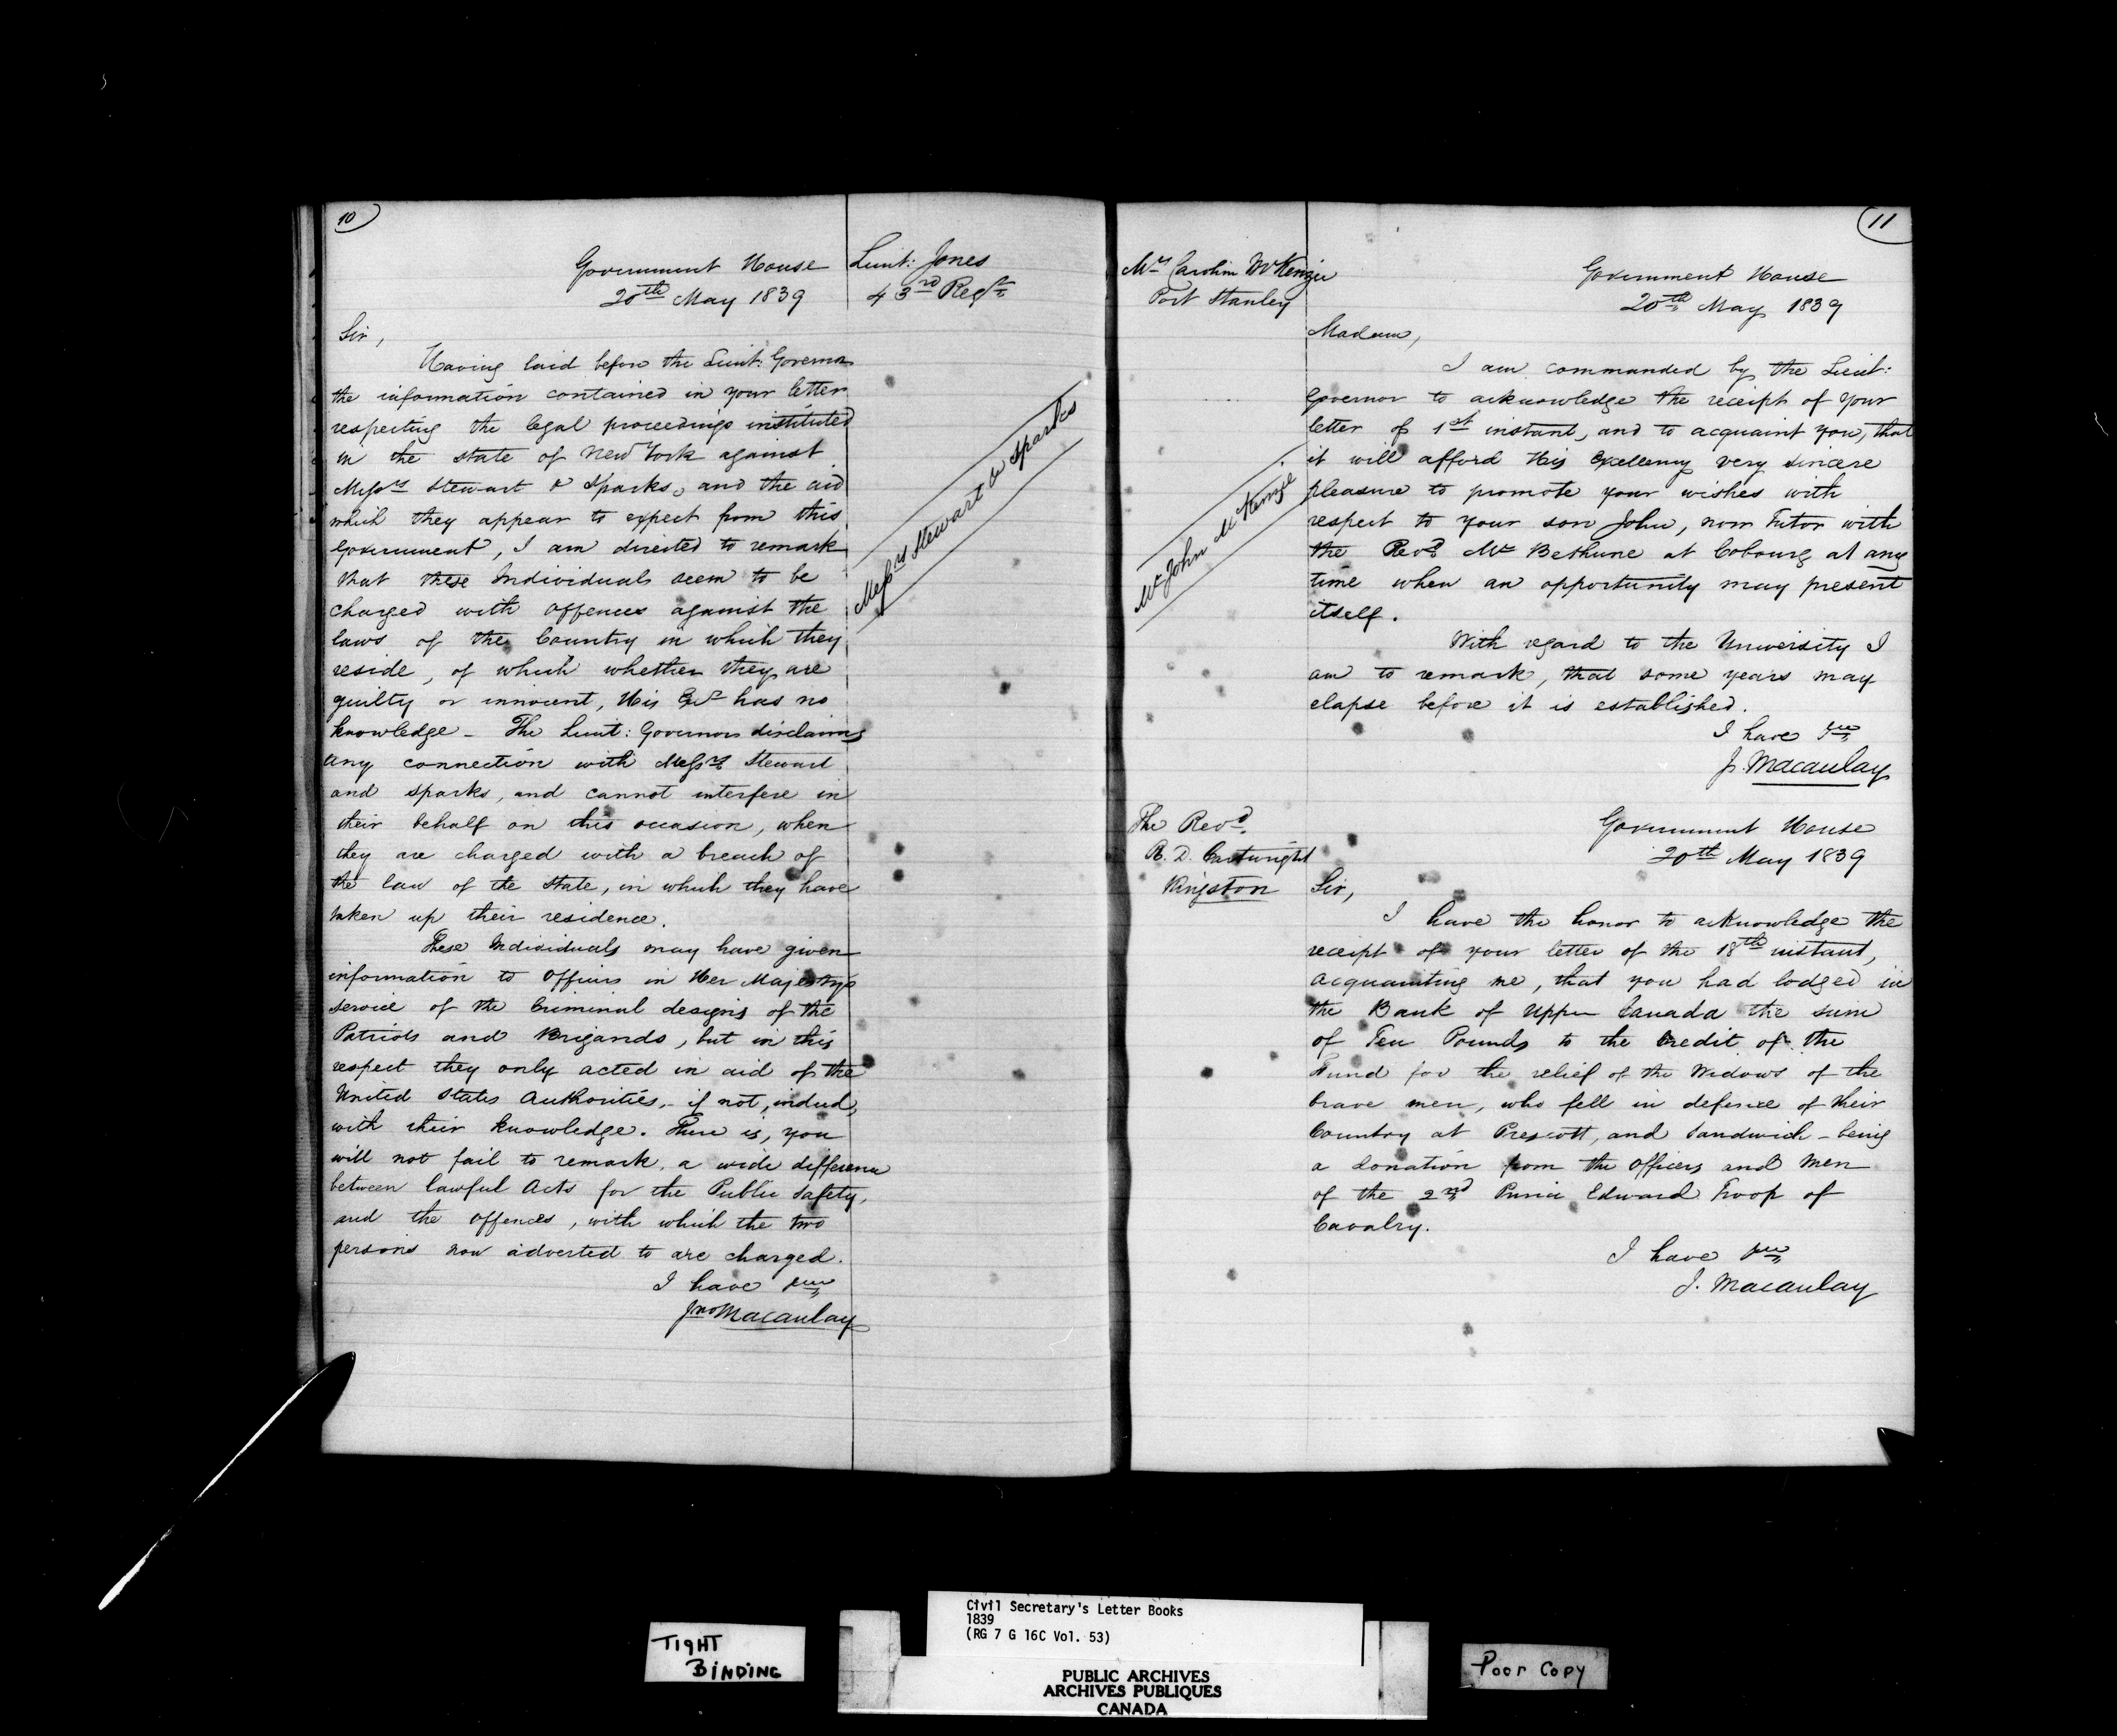 10
Government House
20th May 1839
Lieut: Jones
43rd Regt
Sir,
Having laid before the Lieut: Governor
the information contained in your letter
respecting the legal proceedings instituted
in the state of New York against
Messrs Stewart & Sparks, and the aid
which they appear to expect from this
Government, I am directed to remark
that these Individuals seem to be
charged with offences against the
laws of the Country in which they
reside, of which whether they are
guilty or innocent, His Exc has no
knowledge - The Lieut: Governor disclaims
any connection with Messrs Stewart
and Sparks, and cannot interfere in
their behalf on this occasion, when
they are charged with a breach of
the law of the State, in which they have
taken up their residence.
These Individuals may have given
information to Officers in Her Majesty's
service of the Criminal designs of the
Patriots and Brigands, but in this
respect they only acted in aid of the
United States Authorities, - if not, indeed,
with their knowledge. There is, you
will not fail to remark, a wide difference
between lawful Acts for the Public Safety,
and the offences, with which the two
persons now adverted to are charged.
I have &c
Jno Macaulay
Messrs Stewart & Sparks
11
Mrs Caroline McKenzie
Port Stanley
Government House
20th May 1839
Madam,
I am commanded by the Lieut:
Governor to acknowledge the receipt of your
letter of 1st instant, and to acquaint you, that
it will afford His Excellency very sincere
pleasure to promote your wishes with
respect to your son John, now Tutor with
the Revd Mr Bethune at Cobourg at any
time when an opportunity may present
itself.
With regard to the University I
am to remark, that some years may
elapse before it is established.
I have &c
J. Macaulay
Mr John McKenzie
The Revd
R. D. Cartwright
Kingston
Government House
20th May 1839
Sir,
I have the honor to acknowledge the
receipt of your letter of the 18th instant,
acquainting me, that you had lodged in
the Bank of Upper Canada the sum
of Ten Pounds to the Credit of the
Fund for the relief of the Widows of the
brave men, who fell in defence of their
Country at Prescott, and Sandwich - being
a donation from the Officers and Men
of the 2nd Prince Edward Troop of
Cavalry.
I have &c
J. Macaulay
TIGHT
BINDING
Civil Secretary's Letter Books
1839
(RG 7 G 16C Vol. 53)
PUBLIC ARCHIVES
ARCHIVES PUBLIQUES
CANADA
Poor Copy